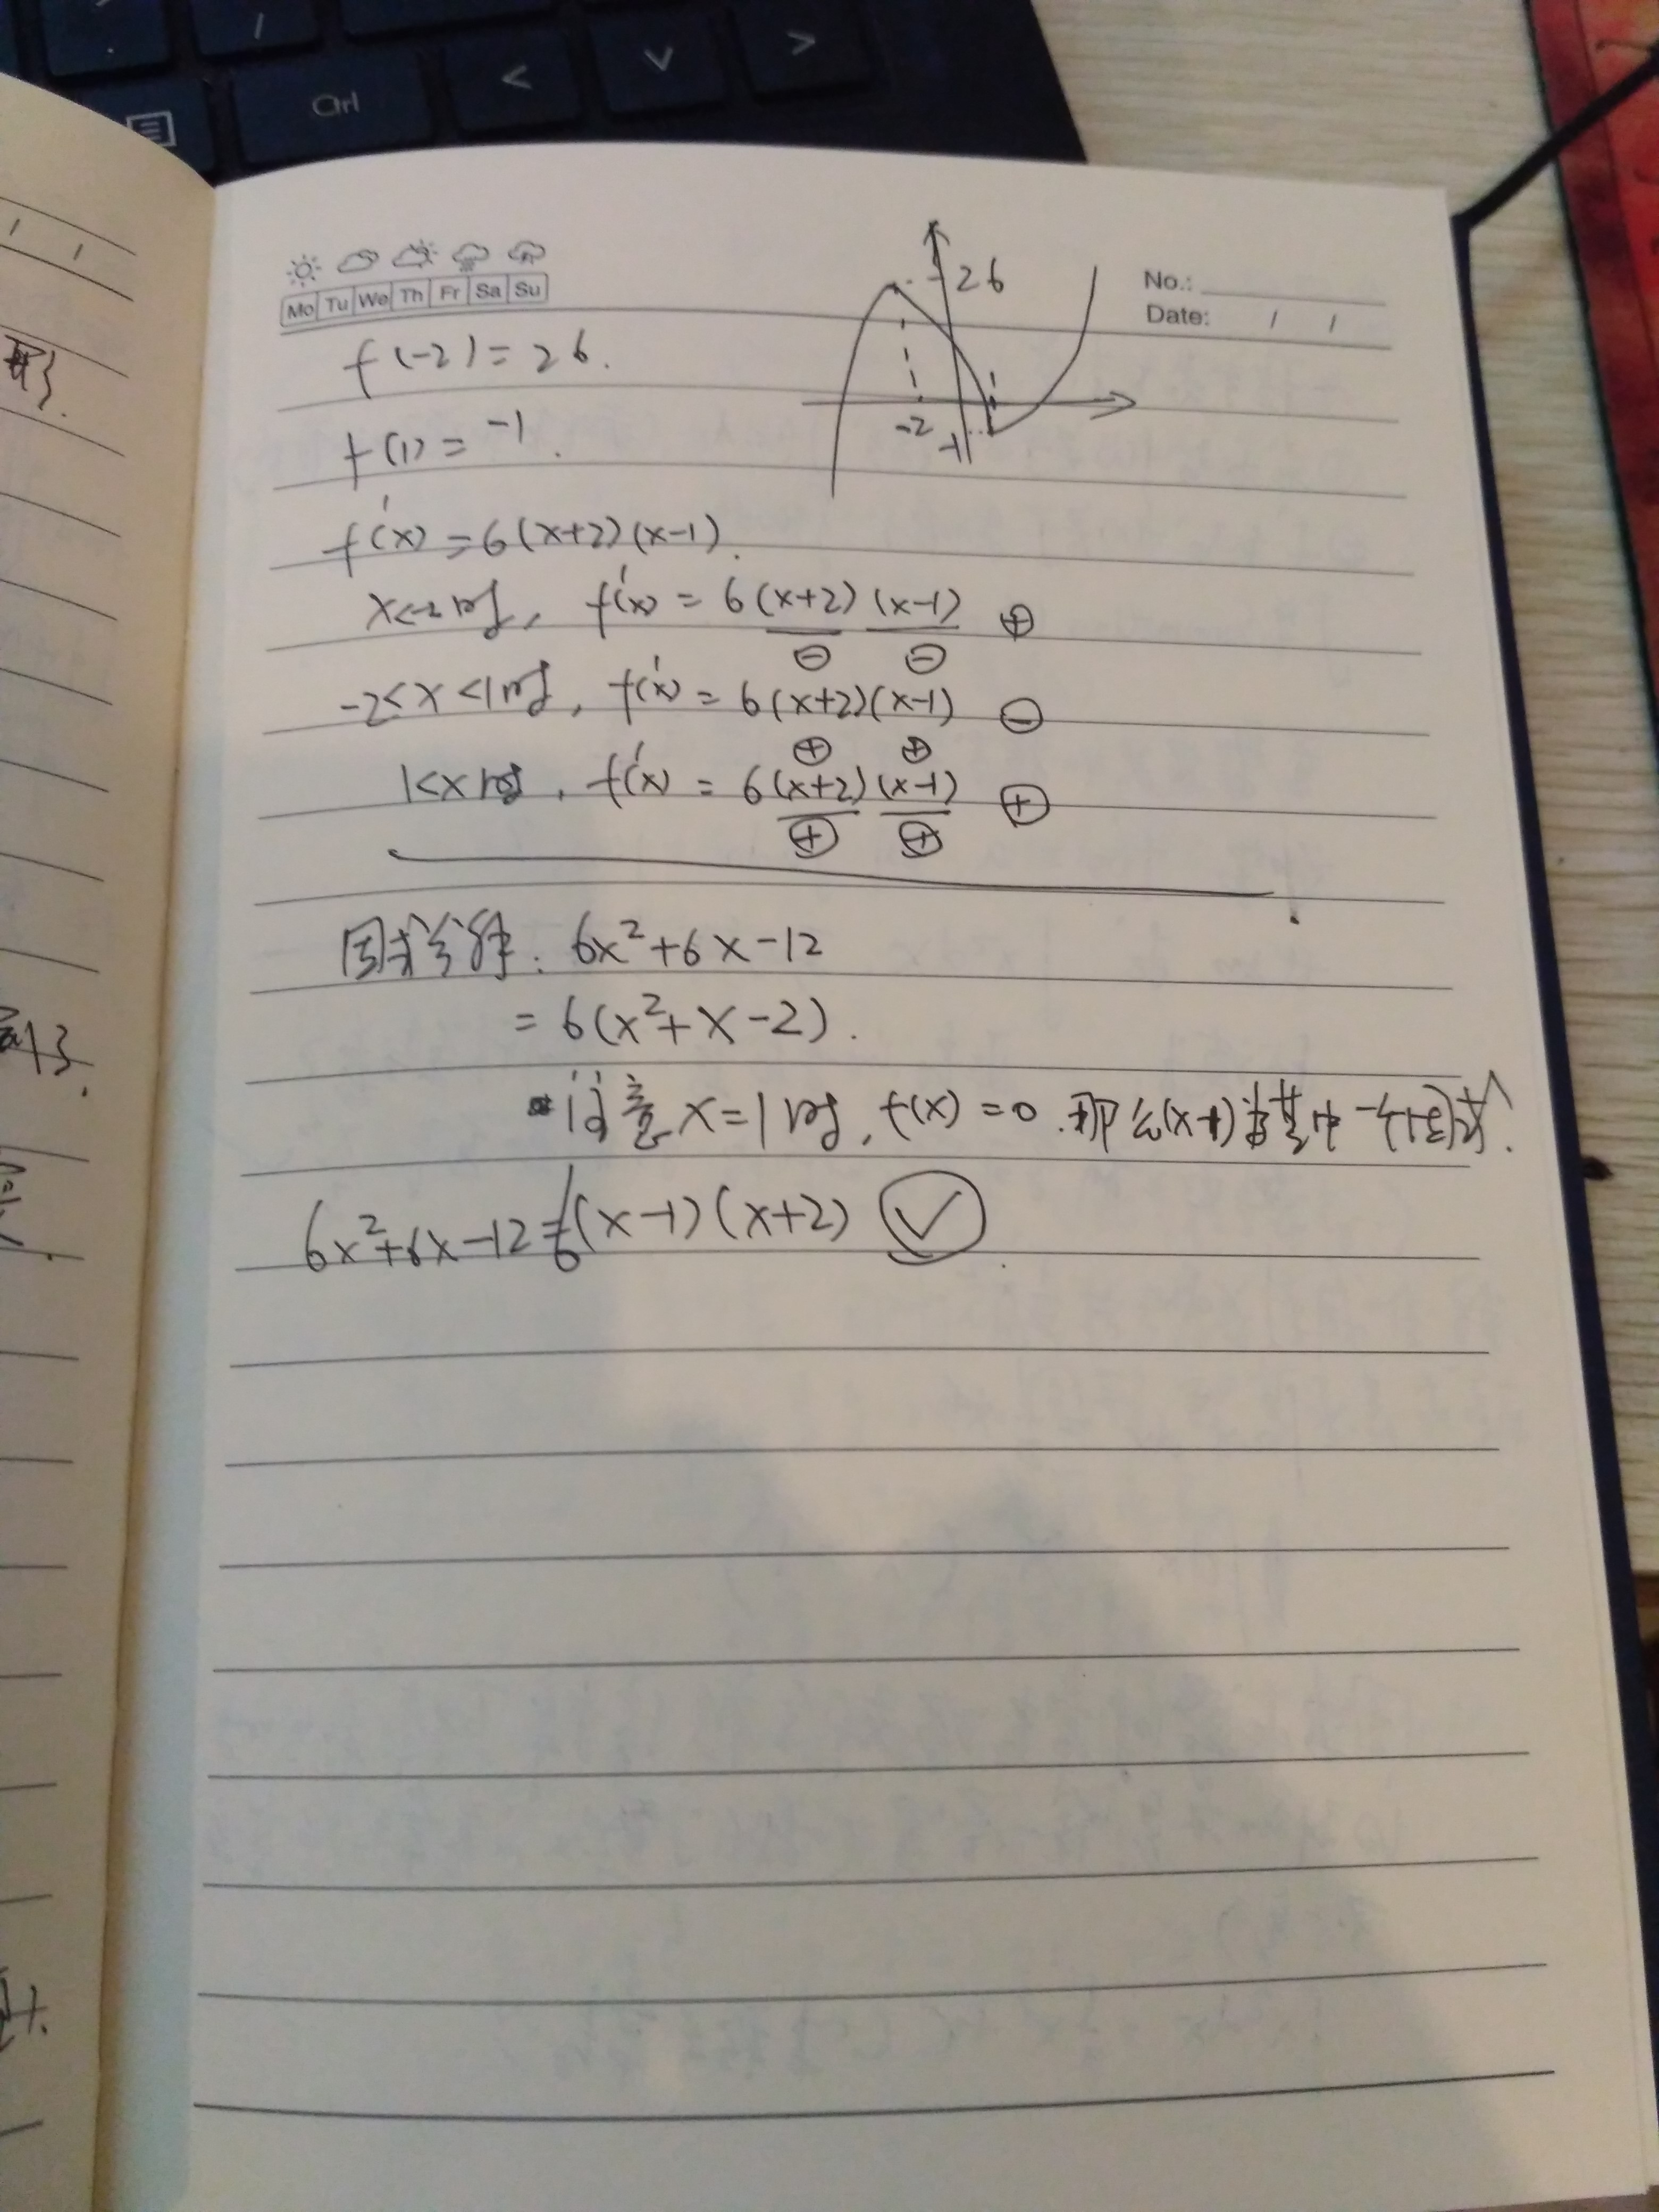 Ctrl
< v >
Mo Tu We Th Fr Sa Su
No.:
Date: / /
26
-2
-1
f(-2)=26.
f(1)=-1.
f'(x)=6(x+2)(x-1).
x<-2时, f'(x)=6(x+2)(x-1) ⊕
⊖ ⊖
-2<x<1时, f'(x)=6(x+2)(x-1) ⊖
⊕ ⊕
1<x时, f'(x)=6(x+2)(x-1) ⊕
⊕ ⊕
因式分解: 6x²+6x-12
=6(x²+x-2).
注意x=1时, f(x)=0.那么(x-1)为其中一个因式.
6x²+6x-12=6(x-1)(x+2) ✓